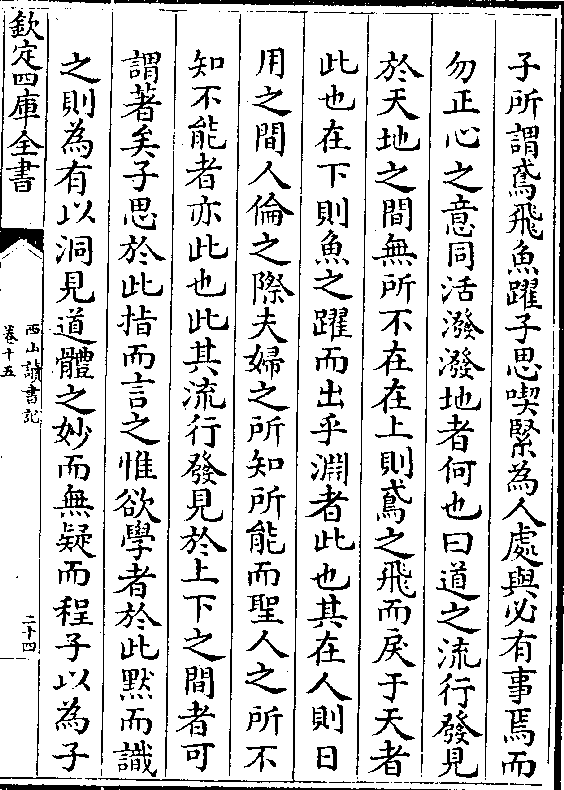 子所謂鳶飛魚躍子思喫緊為人處與必有事焉而
勿正心之意同活潑潑地者何也曰道之流行發見
於天地之間無所不在在上則鳶之飛而戾于天者
此也在下則魚之躍而出乎淵者此也其在人則日
用之間人倫之際夫婦之所知所能而聖人之所不
知不能者亦此也此其流行發見於上下之間者可
謂著矣子思於此指而言之惟欲學者於此默而識
之則為有以洞見道體之妙而無疑而程子以為子
欽定四庫全書
西山讀書記
卷十五
二十四